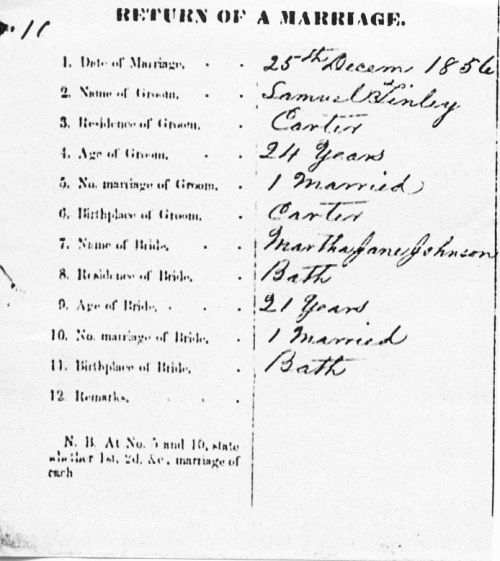 RETURN OF A MARRIAGE.
1. Date of Marriage, 25th Decem 1856
2. Name of Groom, Samuel B Finley
3. Residence of Groom, Carter
4. Age of Groom, 24 Years
5. No. marriage of Groom, 1 Married
6. Birthplace of Groom, Carter
7. Name of Bride, Martha Jane Johnson
8. Residence of Bride, Bath
9. Age of Bride, 21 Years
10. No. marriage of Bride, 1 Married
11. Birthplace of Bride, Bath
12. Remarks,
N. B. At No. 5 and 10, state
whether 1st, 2d, &c, marriage of
each